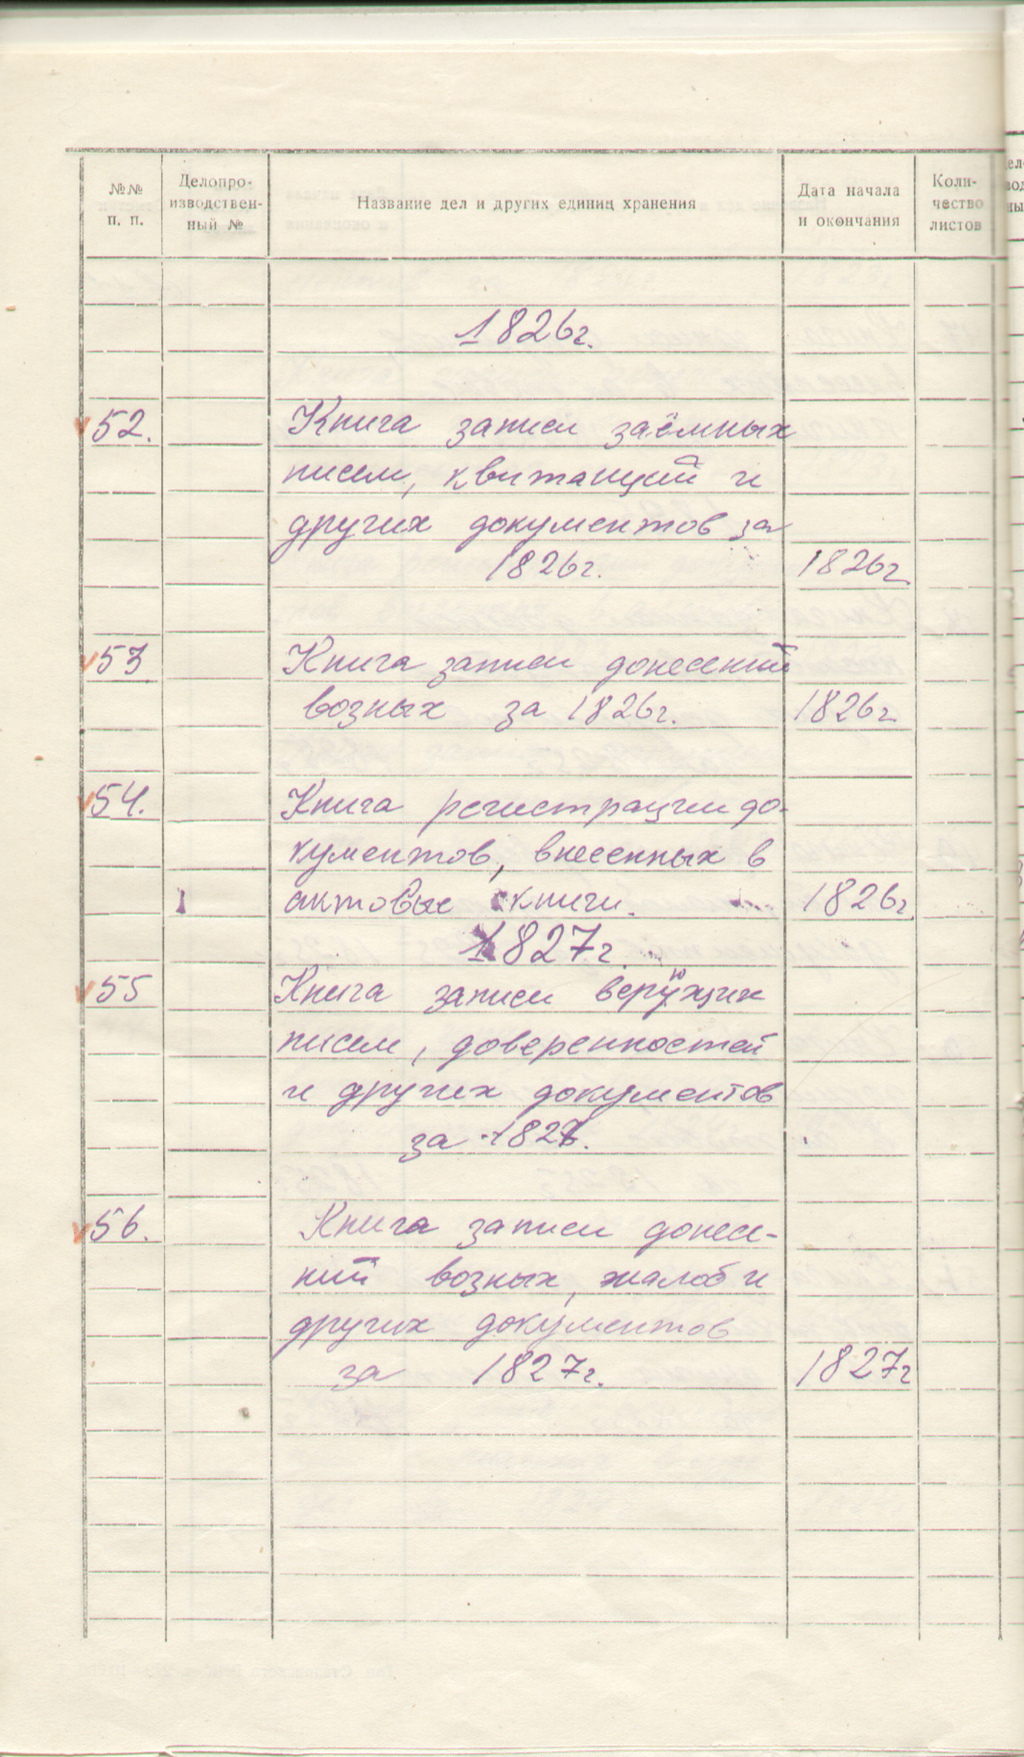 №№ п. п.
Делопро-
изводствен-
ный №
Название дел и других единиц хранения
Дата начала
и окончания
Коли-
чество
листов
1826г.
52. Книга записи заёмных
писем, квитанций и
других документов за
1826г. 1826г
53 Книга записи донесений
возных за 1826г. 1826г.
54. Книга регистрации до-
кументов, внесенных в
актовые книги. 1826г.
1827г.
55 Книга записи верющих
писем, доверенностей
и других документов
за 1827.
56. Книга записи донесе-
ний возных, жалоб и
других документов
за 1827г. 1827г